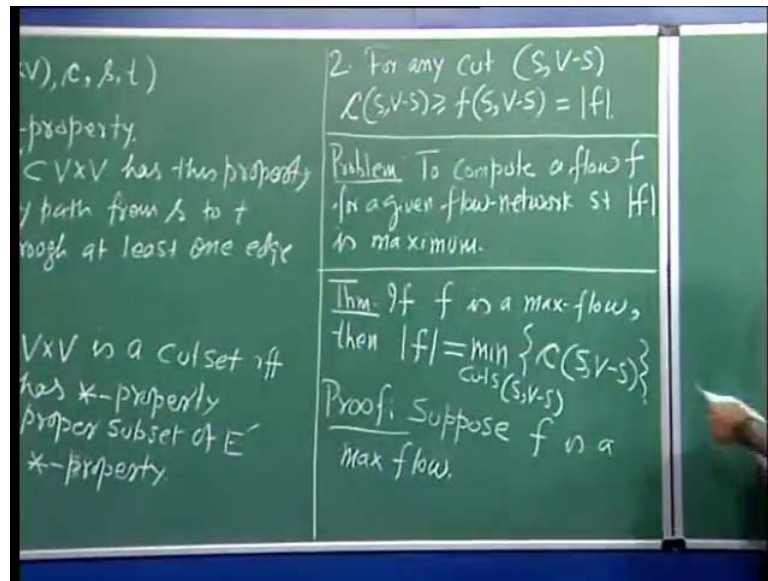 V), c, s, t)
-property.
⊂ V×V has this property
y path from s to t
rough at least one edge
V×V is a cutset iff
has *-property
proper subset of E'
*-property.
2. For any cut (S, V-S)
c(S, V-S) ≥ f(S, V-S) = |f|.
Problem: To compute a flow f
for a given flow-network st |f|
is maximum.
Thm. If f is a max-flow,
then |f| = min {c(S, V-S)}
cuts (S, V-S)
Proof: Suppose f is a
max flow.